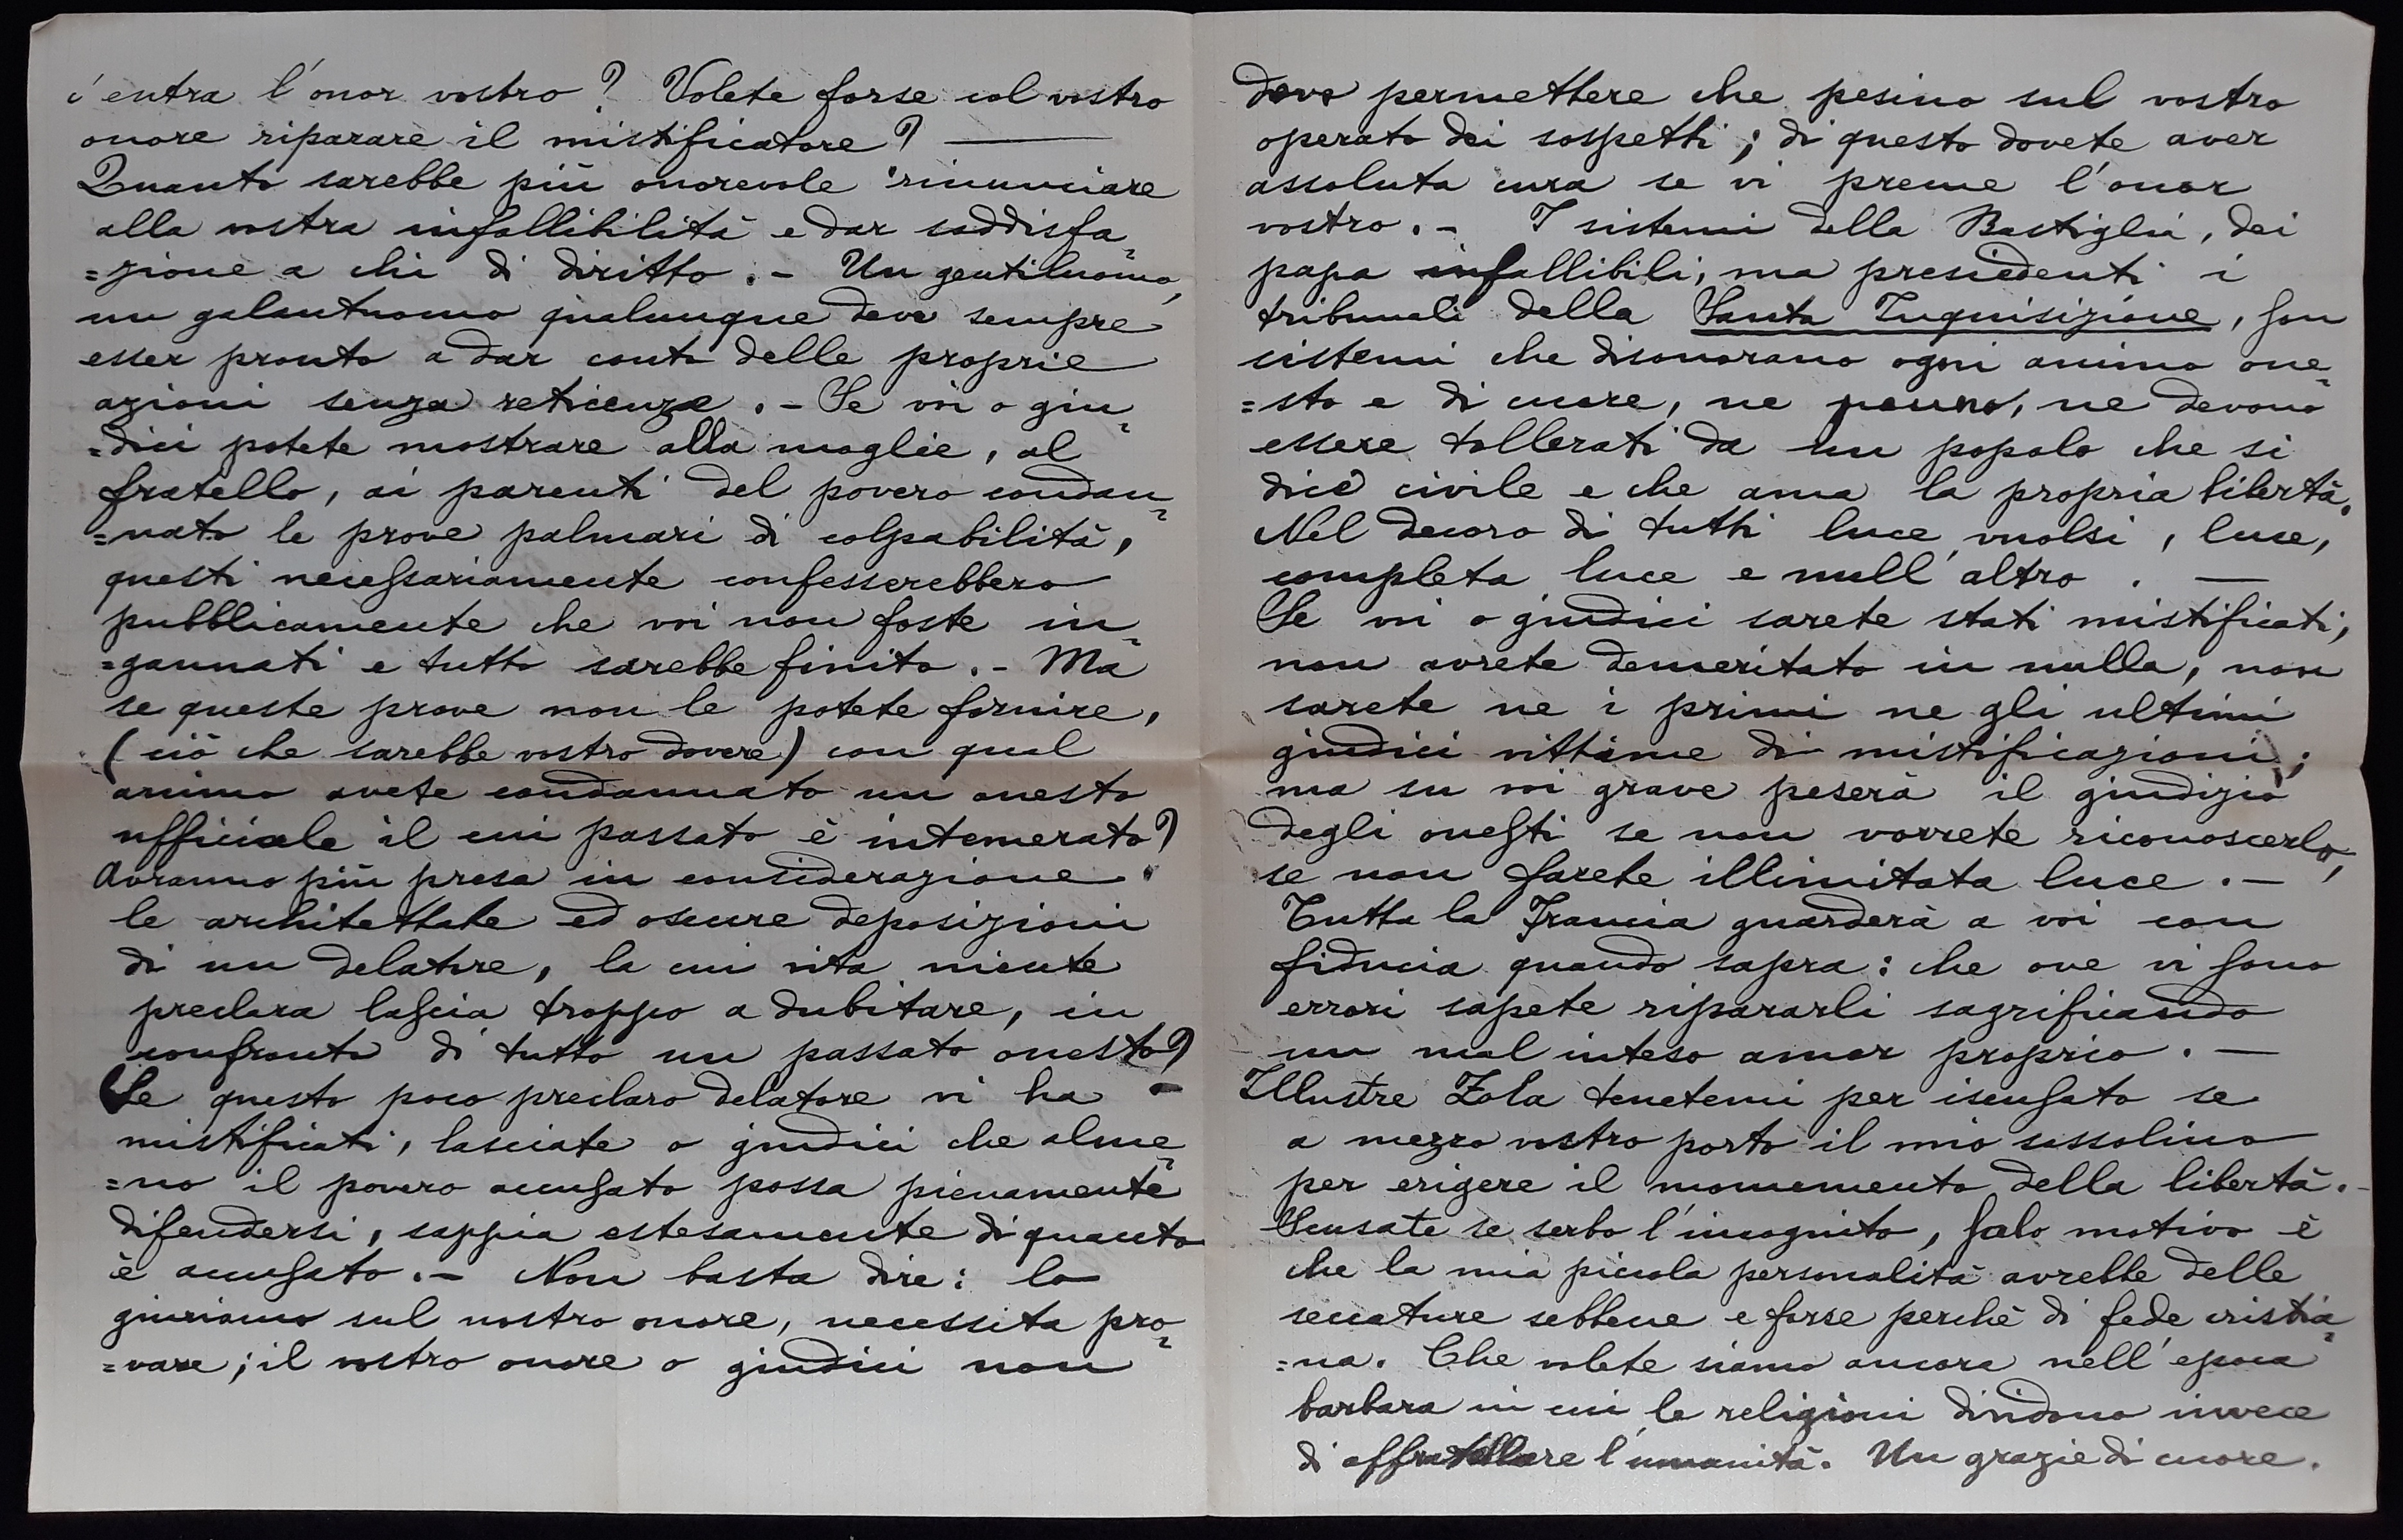 c'entra l'onor vostro? Volete forse col vostro
onore riparare il mistificatore? —
Quanto sarebbe più onorevole rinunciare
alla vostra infallibilità e dar soddisfa=
=zione a chi di diritto. – Un gentiluomo,
un galantuomo qualunque deve sempre
esser pronto a dar conto delle proprie
azioni senza reticenze. – Se voi o giu=
=dici potete mostrare alla moglie, al
fratello, ai parenti del povero condan=
=nato le prove palmari di colpabilità,
questi necessariamente confesserebbero
pubblicamente che voi non foste in=
=gannati e tutto sarebbe finito. – Ma
se queste prove non le potete fornire,
(ciò che sarebbe vostro dovere) con qual
animo avete condannato un onesto
ufficiale il cui passato è intemerato?
Avranno più presa in considerazione
le architettate ed oscure deposizioni
di un delatore, la cui vita niente
preclara lascia troppo a dubitare, in
confronto di tutto un passato onesto?
Se questo poco preclaro delatore vi ha –
mistificati, lasciate o giudici che alme=
=no il povero accusato possa pienamente
difendersi, sappia estesamente di quanto
è accusato. – Non basta dire: lo
giuriamo sul nostro onore, necessita pro=
=vare; il vostro onore o giudici non
deve permettere che pesino sul vostro
operato dei sospetti; di questo dovete aver
assoluta cura se vi preme l'onor
vostro. – I sistemi della Bastiglia, dei
papa infallibili, ma presiedenti i
tribunali della Santa Inquisizione, son
sistemi che disonorano ogni animo one=
=sto e di cuore, ne ponno, ne devono
essere tollerati da un popolo che si
dice civile e che ama la propria libertà.
Nel decoro di tutti luce vuolsi, luce,
completa luce e null'altro. —
Se voi o giudici sarete stati mistificati,
non avrete demeritato in nulla, non
sarete ne i primi ne gli ultimi
giudici vittime di mistificazioni;
ma su voi grave peserà il giudizio
degli onesti se non vorrete riconoscerlo,
se non farete illimitata luce. –
Tutta la Francia guarderà a voi con
fiducia quando sapra: che ove vi sono
errori sapete ripararli sagrificando
un mal inteso amor proprio. —
Illustre Zola tenetemi per iscusato se
a mezzo vostro porto il mio sassolino
per erigere il monumento della libertà. –
Scusate se serbo l'incognito, solo motivo è
che la mia piccola personalità avrebbe delle
seccature sebbene e forse perchè di fede cristia=
=na. Che volete siamo ancora nell'epoca
barbara in cui le religioni dividono invece
di affratellare l'umanità. Un grazie di cuore.